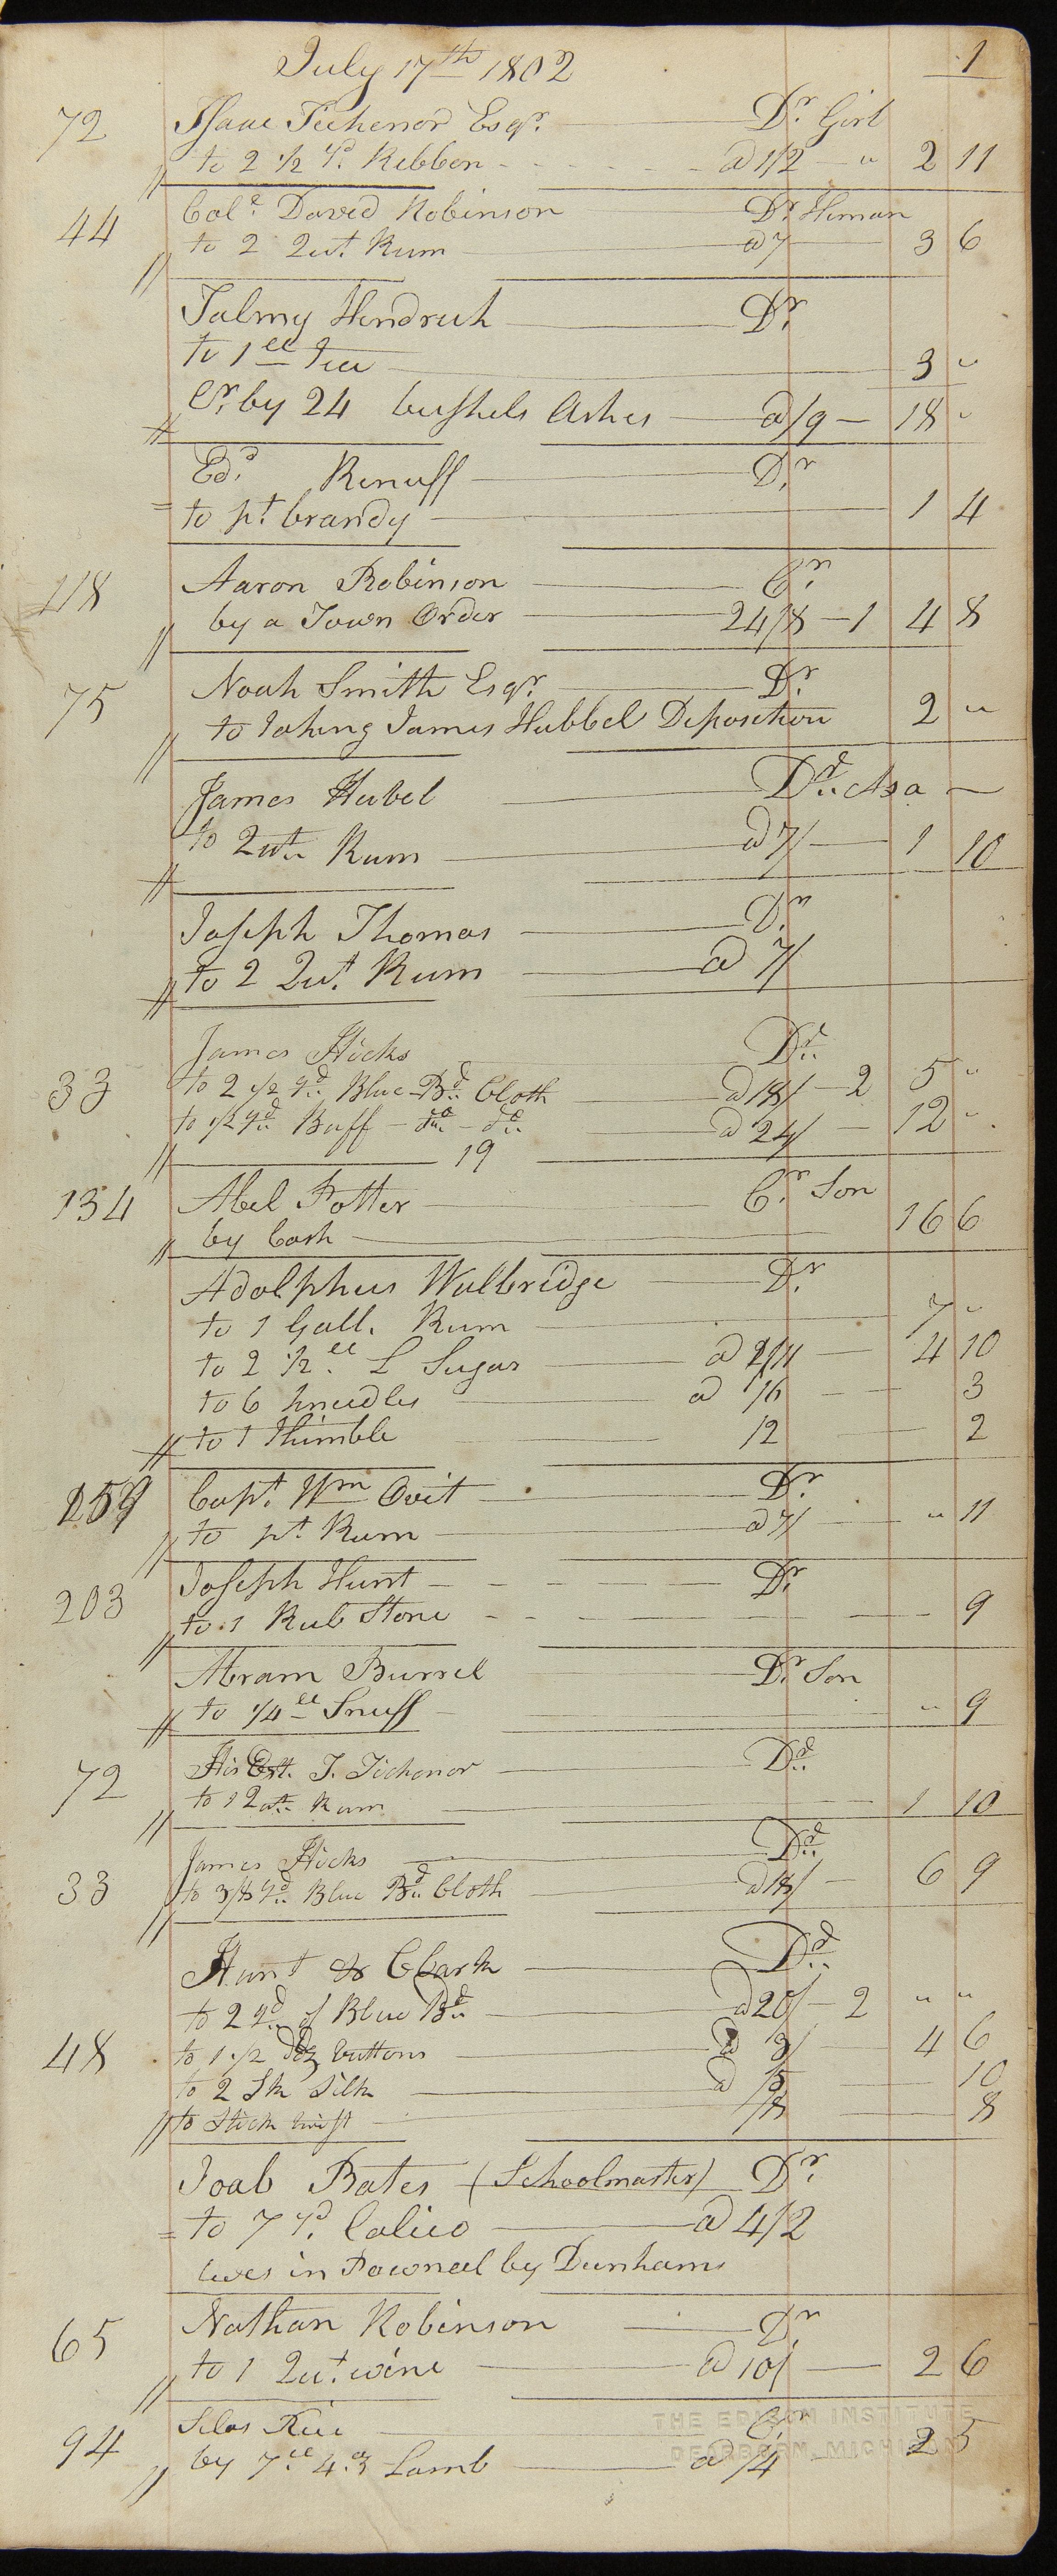 July 17th 1802 1
72 Isaac Tichenor Esqr. Dr. Girl
to 2 1/2 Yd. Ribbon @ 1/2 " 2 11
44 Col. David Robinson Dr. Heman
to 2 Qut. Rum @ 7 3 6
Talmy Hendrick Dr.
to 1 ll tea 3 "
Cr. by 24 bushels Ashes @ /9 18 "
Ed. Renuff Dr.
to pt. brandy 1 4
118 Aaron Robinson Cr.
by a Town Order 24/8 1 4 8
75 Noah Smith Esqr. Dr.
to taking James Hubbel Deposition 2 "
James Hubel Dr. Asa
to Qut. Rum @ 7/ 1 10
Joseph Thomas Dr.
to 2 Qut. Rum @ 7/
James Hicks Dr.
33 to 2 1/2 Yd. Blue Bd. Cloth @ 18/ 2 5 "
to 1/2 Yd. Buff do. do. @ 24/ 12 "
19
134 Abel Potter Cr. Son
by Cash 16 6
Adolphus Walbridge Dr.
to 1 Gall. Rum 7 "
to 2 1/2 ll L Sugar @ 1/11 4 10
to 6 kneedles @ 1/6 3
to 1 thimble 12 2
159 Capt. Wm Ovit Dr.
to pt. Rum @ 7/ " 11
203 Joseph Hunt Dr.
to 1 Rub Stone 9
Abram Burrel Dr. Son
to 1/4 ll Snuff " 9
72 His Ext. I. Tichenor Dr.
to 1 Qut. Rum 1 10
James Hicks Dr.
33 to 3/8 Yd. Blue Bd. Cloth @ 18/ 6 9
Hunt & Clark Dr.
to 2 Yd. of Blue Bd. @ 20/ 2 " "
48 to 1 1/2 doz buttons @ 3/ 4 6
to 2 Sk Silk @ /5 10
to Stick twist /8 8
Joab Bates (Schoolmaster) Dr.
to 7 Yd. Calico @ 4/2
lives in Pownal by Dunhams
65 Nathan Robinson Dr.
to 1 Qut. wine @ 10/ 2 6
94 Silas Rice Cr.
by 7 ll 4 oz Lamb @ /4 2 5
THE EDISON INSTITUTE
DEARBORN, MICHIGAN